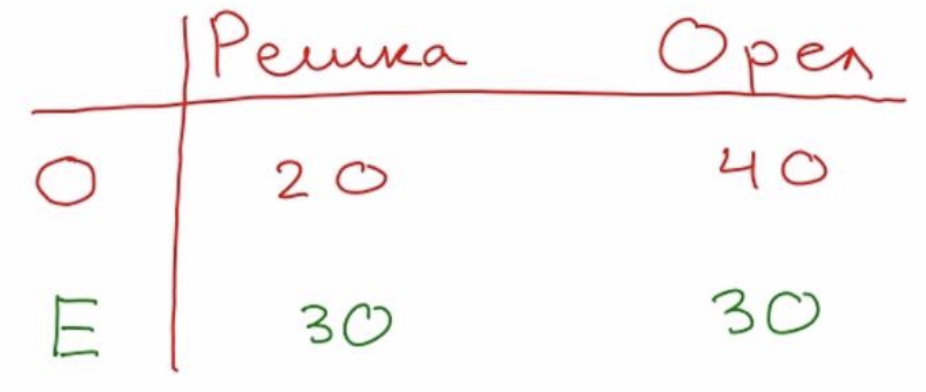 Решка Орел
О 20 40
E 30 30